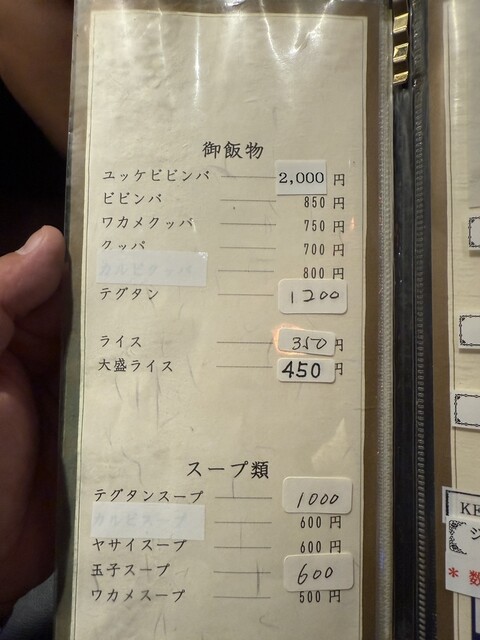 御飯物
ユッケビビンバ 2,000 円
ビビンバ 850 円
ワカメクッパ 750 円
クッパ 700 円
カルビクッパ 800 円
テグタン 1200
ライス 350 円
大盛ライス 450 円
スープ類
テグタンスープ 1000
カルビスープ 600 円
ヤサイスープ 600 円
玉子スープ 600
ワカメスープ 500 円
KE
ジ
* 数